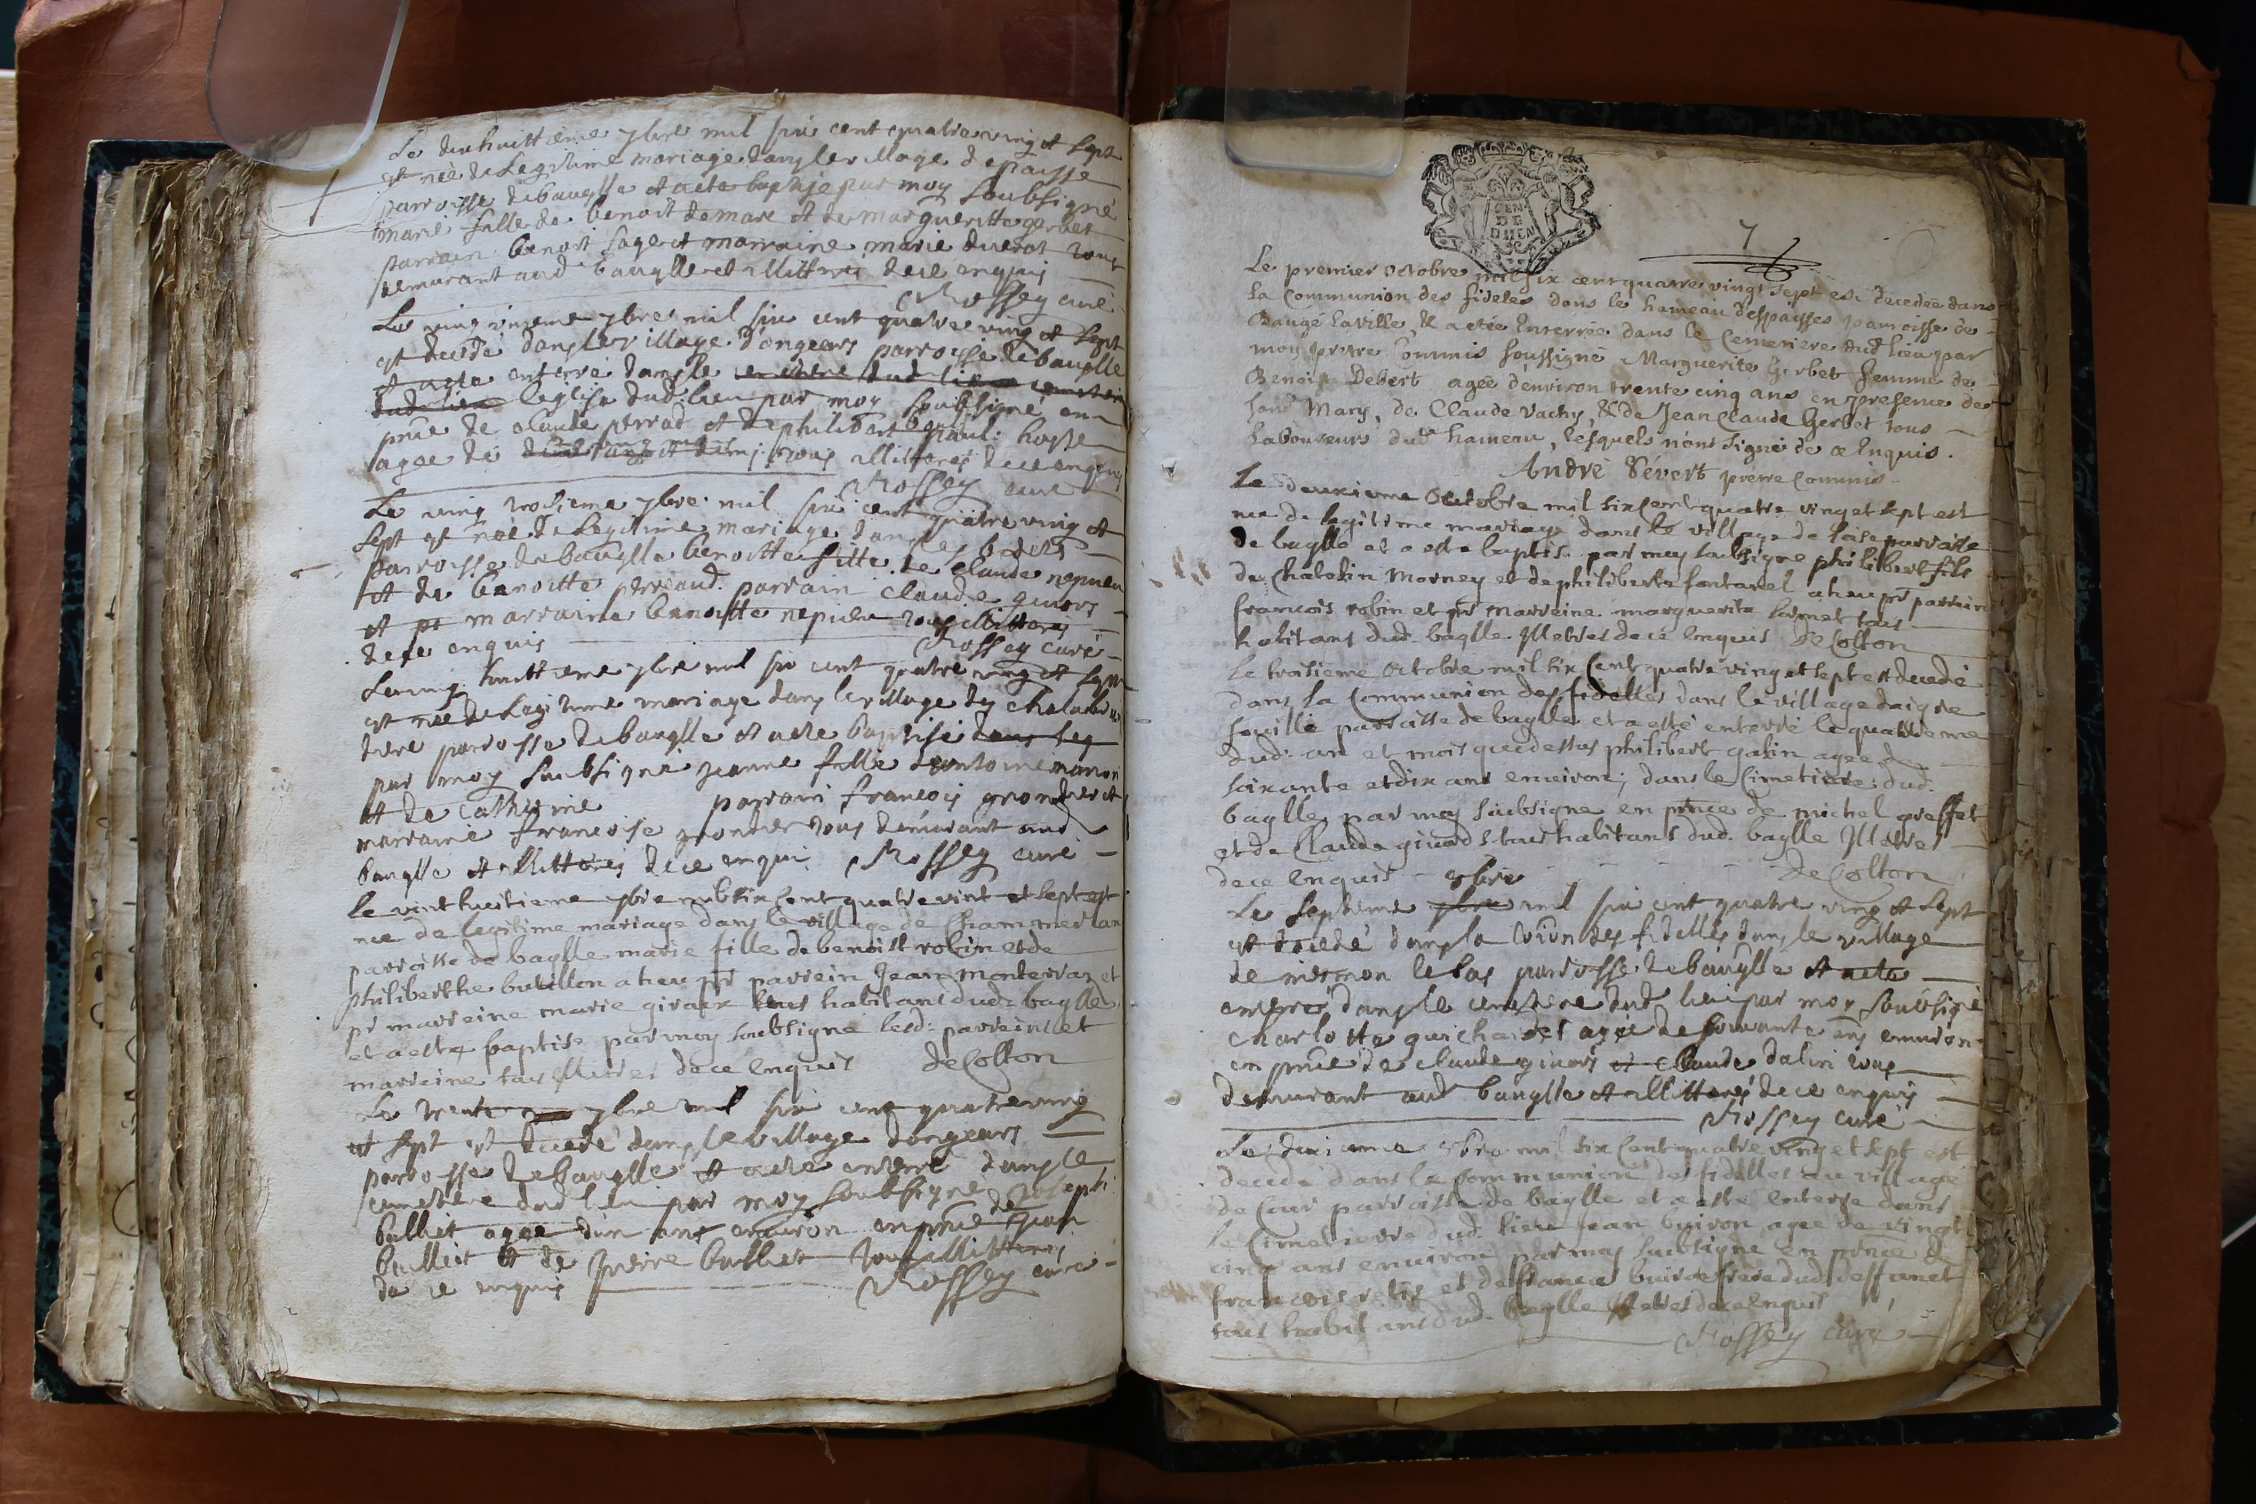 Le dixhuittieme 7bre mil six cent quatre ving et sept
est née de Legitime mariage dans le village depaisse
parroisse de bauglle et a ete baptise par moy soubsigné
marie fille de benoit de mare et de margueritte gerbet
parrain benoit sage et marraine marie duerot tous
demurant aud bauglle et illitteres de ce enquis
Rossey curé
Le ving unieme 7bre mil six cent quatre ving et sept
est decedé dans le village dongears parroisse de baugelle
et a ete enterré dans le cimetiere dud lieu
dud lieu leglise dud lieu par moy soubsigné en
pnce de claude perrad et de philibert
agee de tous illitteres de ce enquis
Rossey curé
Le ving troisieme 7bre mil six cent quatre ving et
sept est née de Legitime mariage dans les
parroisse de bauglle benoitte fille de claude nepueu
et de benoitte perraud parrain claude guiors
et pr marraine benoitte nepueu tous illitteres
de ce enquis
Rossey curé
Le ving huittieme 7bre mil six cent quatre ving et sept
est née de Legitime mariage dans le village des
parroisse de bauglle et a ete baptisé dans leg
par moy soubsigné jeanne fille dantoine
et de catherine parrain francois grondier et
marraine francoise grondier tous demurant aud
bauglle et illitteres de ce enqui Rossey curé
le vint huitieme 7bre mil six cent quatre vint et sept est
nee de legitime mariage dans le village de Chammerlan
parroisse de baglle marie fille de benoist robin et de
philiberthe butillon a heu pr parrein Jean monterraz et
pr marreine marie giraux tous habitans dud baglle
et a esté baptise par moy soubsigné lesd: parrein et
marreine tous illitres de ce enquis deColton
Le trente 7bre mil six cent quatre ving
et sept est decedé dans le village dongears
parroisse de baugelle et a ete enterré dans le
cimetiere dud lieu par moy soubsigné Joseph
bulliet agee dun ans environ en pnce de jean
bulliet et de pierre bulliet tous illitteres
de ce enquis Rossey curé
GEN
DE
DIION
7
Le premier octobre mil six cent quatre vingt sept est decedée dans
la Communion des fideles dans le hameau despaisses parroisse de
Baugé la ville, & a etée Enterrée dans le Cemetiere dud lieu par
moy prêtre Commis soussigné Marguerite Gerbet femme de
Benoit Debert agée d'environ trente cinq ans en presence de
sond Mary, de Claude Vachy, & de Jean Claude Gerbet tous
Laboureurs dud hameau, lesquels n'ont signé de ce Enquis.
André Sévert prêtre Commis
Le deuxieme Octobre mil six Cent quatre vinget sept est
nee de legitime mariage dans le village de loise parroisse
de baglle et a esté baptise par moy soubsigne philibert fils
de Chalotin Morney et de philiberte fontanel a heu pr parrein
francois robin et pr marreine marguerite tous
habitans dud baglle Illetres de ce enquis De Colton
Le troisieme Octobre mil six Cent quatre vinget sept est decedé
dans la Communion des fidelles dans le village daigre
feuille parroisse de baglle et a esté enterré le quatrieme
dud: an et mois que dessus philibert galin agee de
soixante et dix ans environ; dans le Cimetiere dud:
baglle par moy soubsigne en pnce de michel greffet
et de Claude giuords tous habitans dud. baglle Illetres
de ce enquis deColton
8bre
Le septieme 7bre mil six cent quatre ving et sept
est decedé dans la coion des fidelles dans le village
de mesmon le bas parroisse de baugelle et a ete
enterré dans le cimetiere dud lieu par moy soubsigné
Charlotte guichardet agee de soixante ans environ
en pnce de claude guiors et Claude dalin tous
demurant aud baugelle et illitteres de ce enquis
Rossey curé
Le dixieme 8bre mil six Cent quatre vinget sept est
decede dans la Communion des fidelles au village
de Cour parroisse de baglle et a esté enterre dans
le Cimetierre dud. lieu Jean buiron agee de vingt
cinq ans environ par moy soubsigne en pnce de
francois retis et de francois buiron frere dud deffunct
tous habitans dud. baglle Illetres de ce enquis
Rossey curé